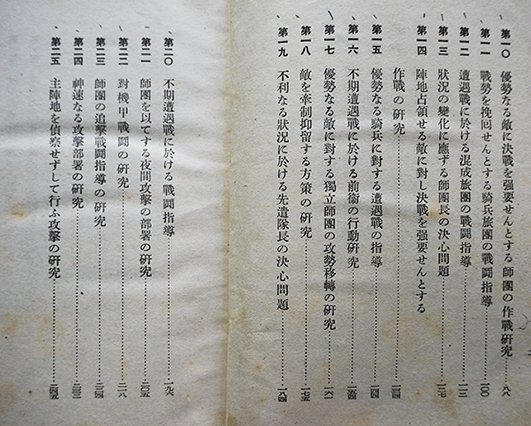 第一〇 優勢なる敵に決戰を強要せんとする師團の作戰研究……八八
第一一 戰勢を挽回せんとする騎兵旅團の戰鬪指導……一〇〇
第一二 遭遇戰に於ける混成旅團の戰鬪指導……一一三
第一三 狀況の變化に應ずる師團長の決心問題……一三七
第一四 陣地占領せる敵に對し決戰を强要せんとする
作戰の研究……一四四
第一五 優勢なる騎兵に對する遭遇戰の指導……
第一六 不期遭遇戰に於ける前衞の行動研究……
第一七 優勢なる敵に對する獨立師團の攻勢移轉の研究……一六一
第一八 敵を牽制抑留する方策の研究……一七五
第一九 不利なる狀況に於ける先遣隊長の決心問題……一八四
第二〇 不期遭遇戰に於ける戰鬪指導……一九六
第二一 師團を以てする夜間攻擊の部署の研究……二〇五
第二二 對機甲戰鬪の研究……二一八
第二三 師團の追擊戰鬪指導の研究……
第二四 神速なる攻擊部署の研究……
第二五 主陣地を偵察せずして行ふ攻擊の研究……二四五